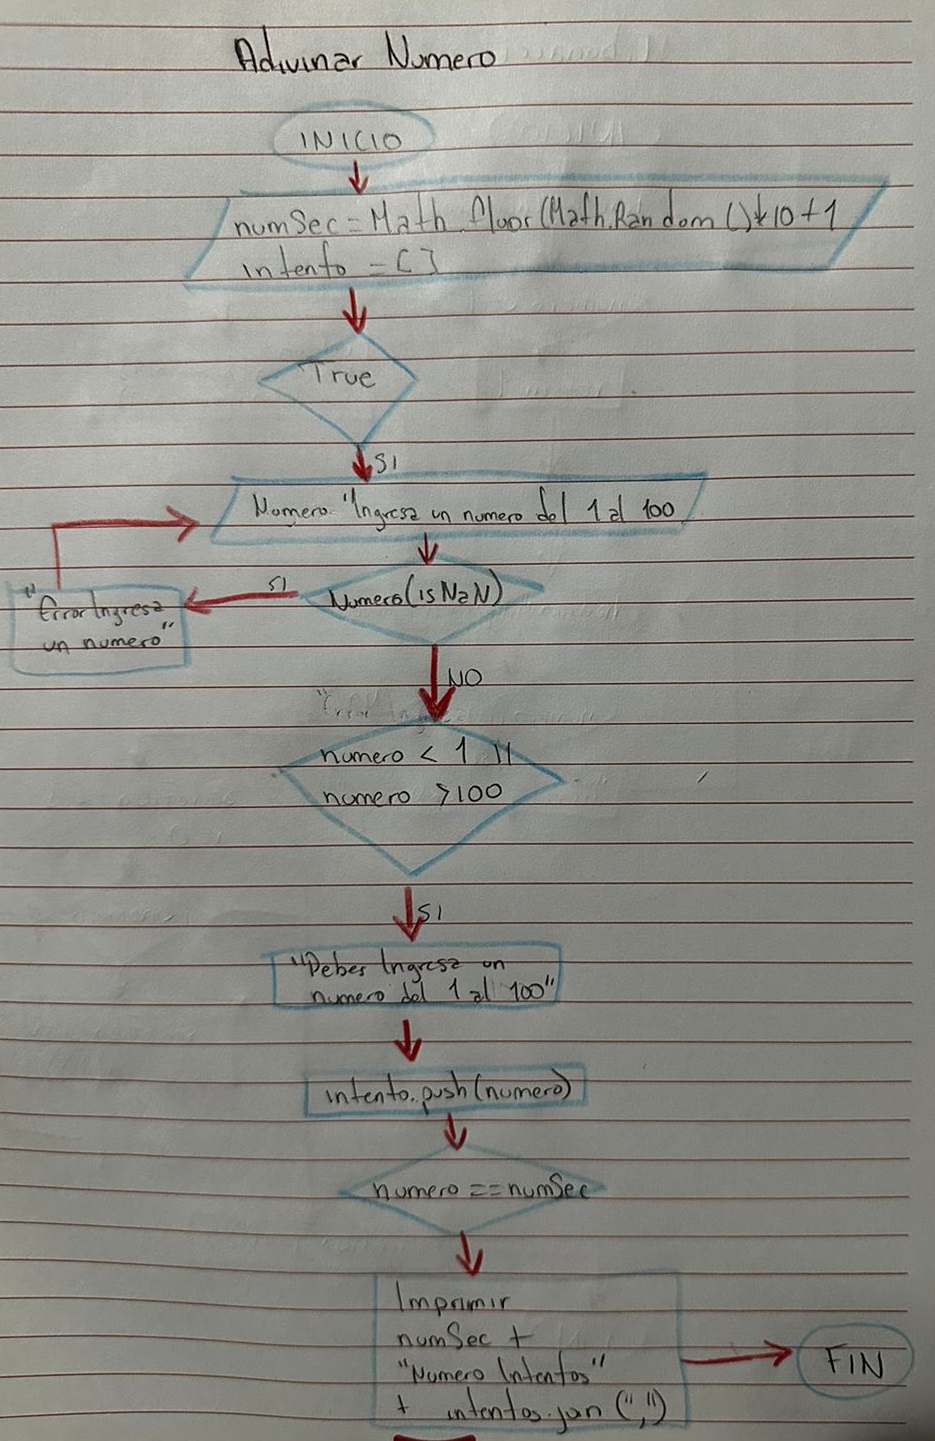 Adivinar Numero
INICIO
numSec = Math.floor(Math.Random()*10+1
intento = []
True
SI
Numero "Ingresa un numero del 1 al 100
Numero(isNaN)
SI
"Error Ingresa
un numero"
NO
"Error
numero < 1 ||
numero >100
SI
"Debes Ingresa un
numero del 1 al 100"
intento.push(numero)
numero == numSec
Imprimir
numSec +
"Numero Intentos"
+ intentos.jon (",")
FIN